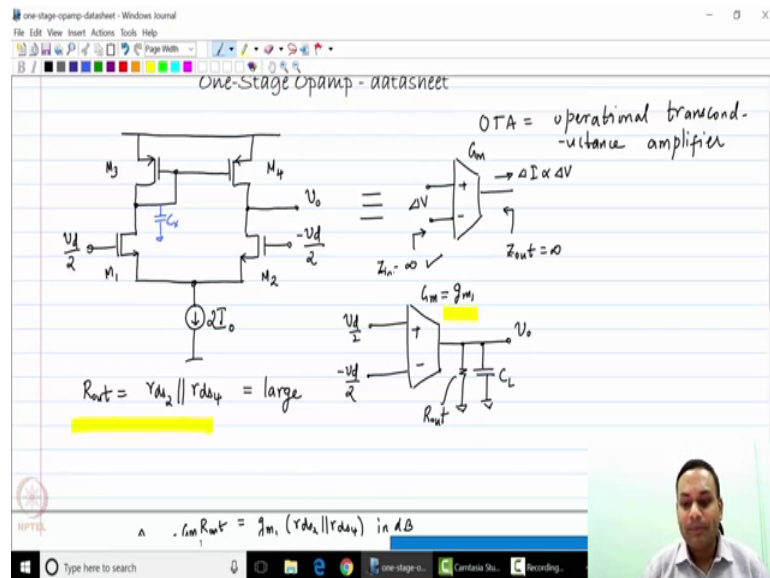 one-stage-opamp-datasheet - Windows Journal
File Edit View Insert Actions Tools Help
Page Width
B I
One-Stage Opamp - datasheet
OTA = operational transcond-
-uctance amplifier
M3
M4
Vo
Cx
Vd/2
-Vd/2
M1
M2
2I0
≡
Gm
ΔV
+
-
→ ΔI ∝ ΔV
Zin = ∞ ✓
Zout = ∞
Gm = gm1
Vd/2
-Vd/2
+
-
Vo
Rout
CL
Rout = rds2 || rds4 = large
NPTEL
GmRout = gm1 (rds2 || rds4) in dB
Type here to search
one-stage-o...
Camtasia Stu...
Recording...